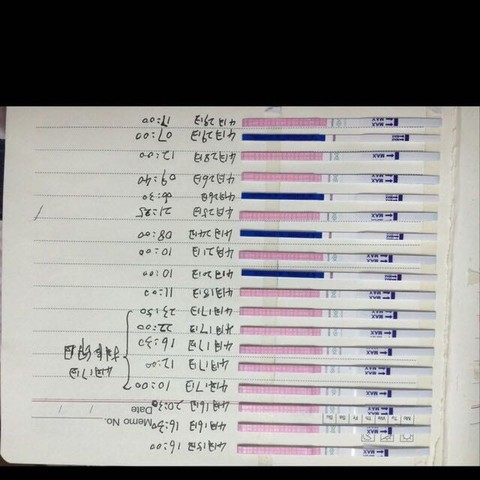 Memo No.
Date / /
Mo Tu We Th Fr Sa Su
4月15日 16:00 MAX
4月16日 16:30 MAX
4月16日 20:30 MAX
4月17日 10:00 MAX
4月17日 12:00 MAX
4月17日
4月17日 16:30 MAX
4月17日 22:00 MAX
4月17日 23:50 MAX
4月18日 11:00 MAX
4月20日 10:00
4月21日 10:00 MAX
4月24日 08:00
4月25日 MAX
4月26日 06:30
4月26日 09:40 MAX
4月28日 12:00 MAX
4月29日 07:00
4月29日 17:00 MAX